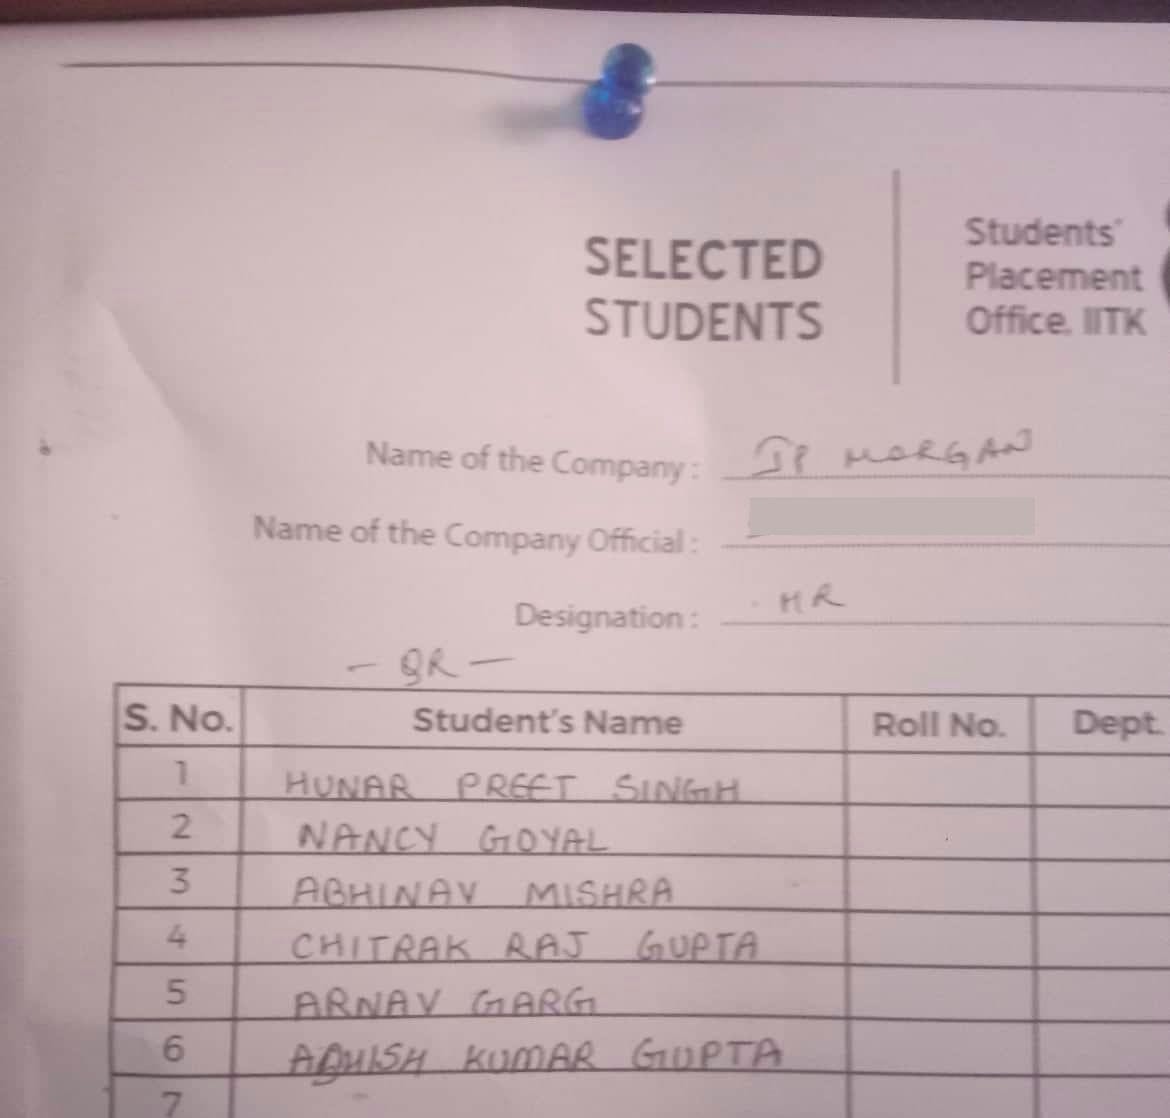 SELECTED
STUDENTS
Students'
Placement
Office, IITK
Name of the Company : JP MORGAN
Name of the Company Official :
Designation : HR
- QR -
S. No. Student's Name Roll No. Dept.
1 HUNAR PREET SINGH
2 NANCY GOYAL
3 ABHINAV MISHRA
4 CHITRAK RAJ GUPTA
5 ARNAV GARG
6 KUMAR GUPTA
7